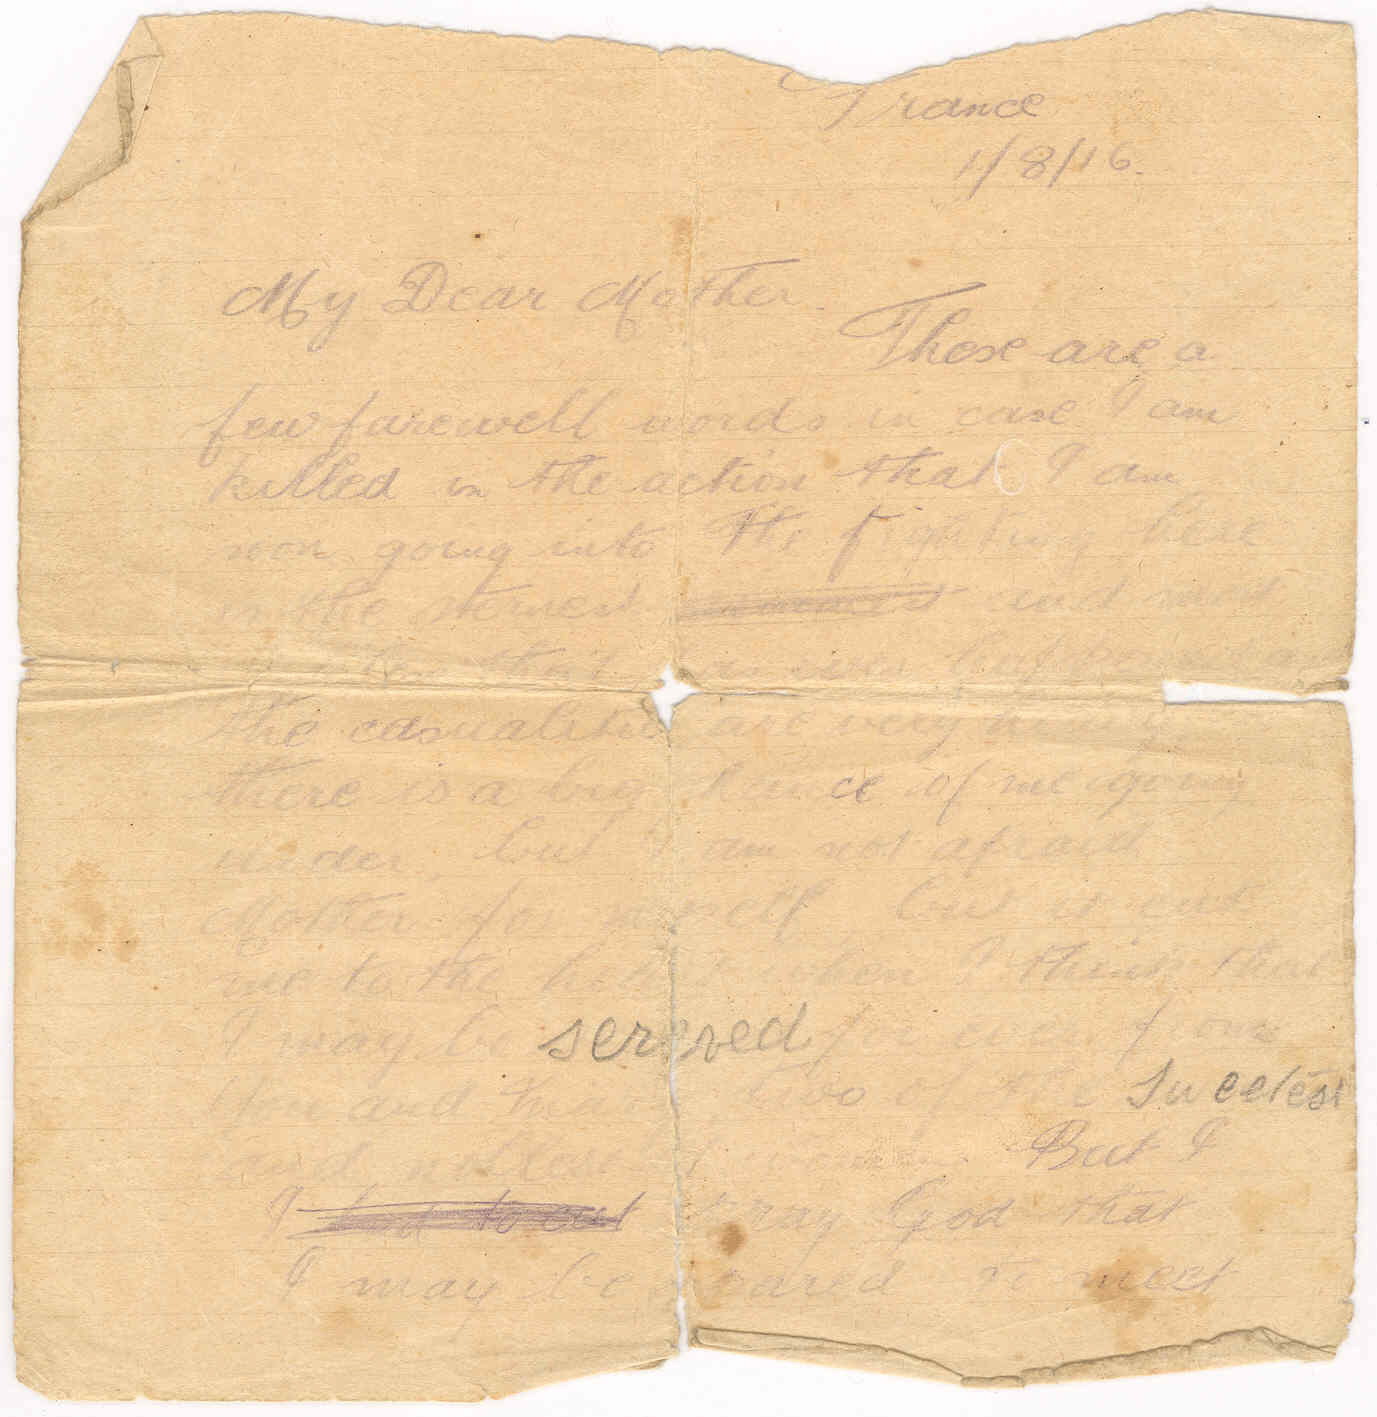 France
1/8/16.
My Dear Mother
These are a
few farewell words in case I am
killed in the action that I am
soon going into the fighting here
is the sternest and most
the casualities are very heavy
there is a big chance of me going
under, but I am not afraid
Mother for myself but it cuts
me to the heart when I think that
I may be serered for ever from
You and two of the Sweetest
and noblest women But I
I had to cut pray God that
I may be spared to meet